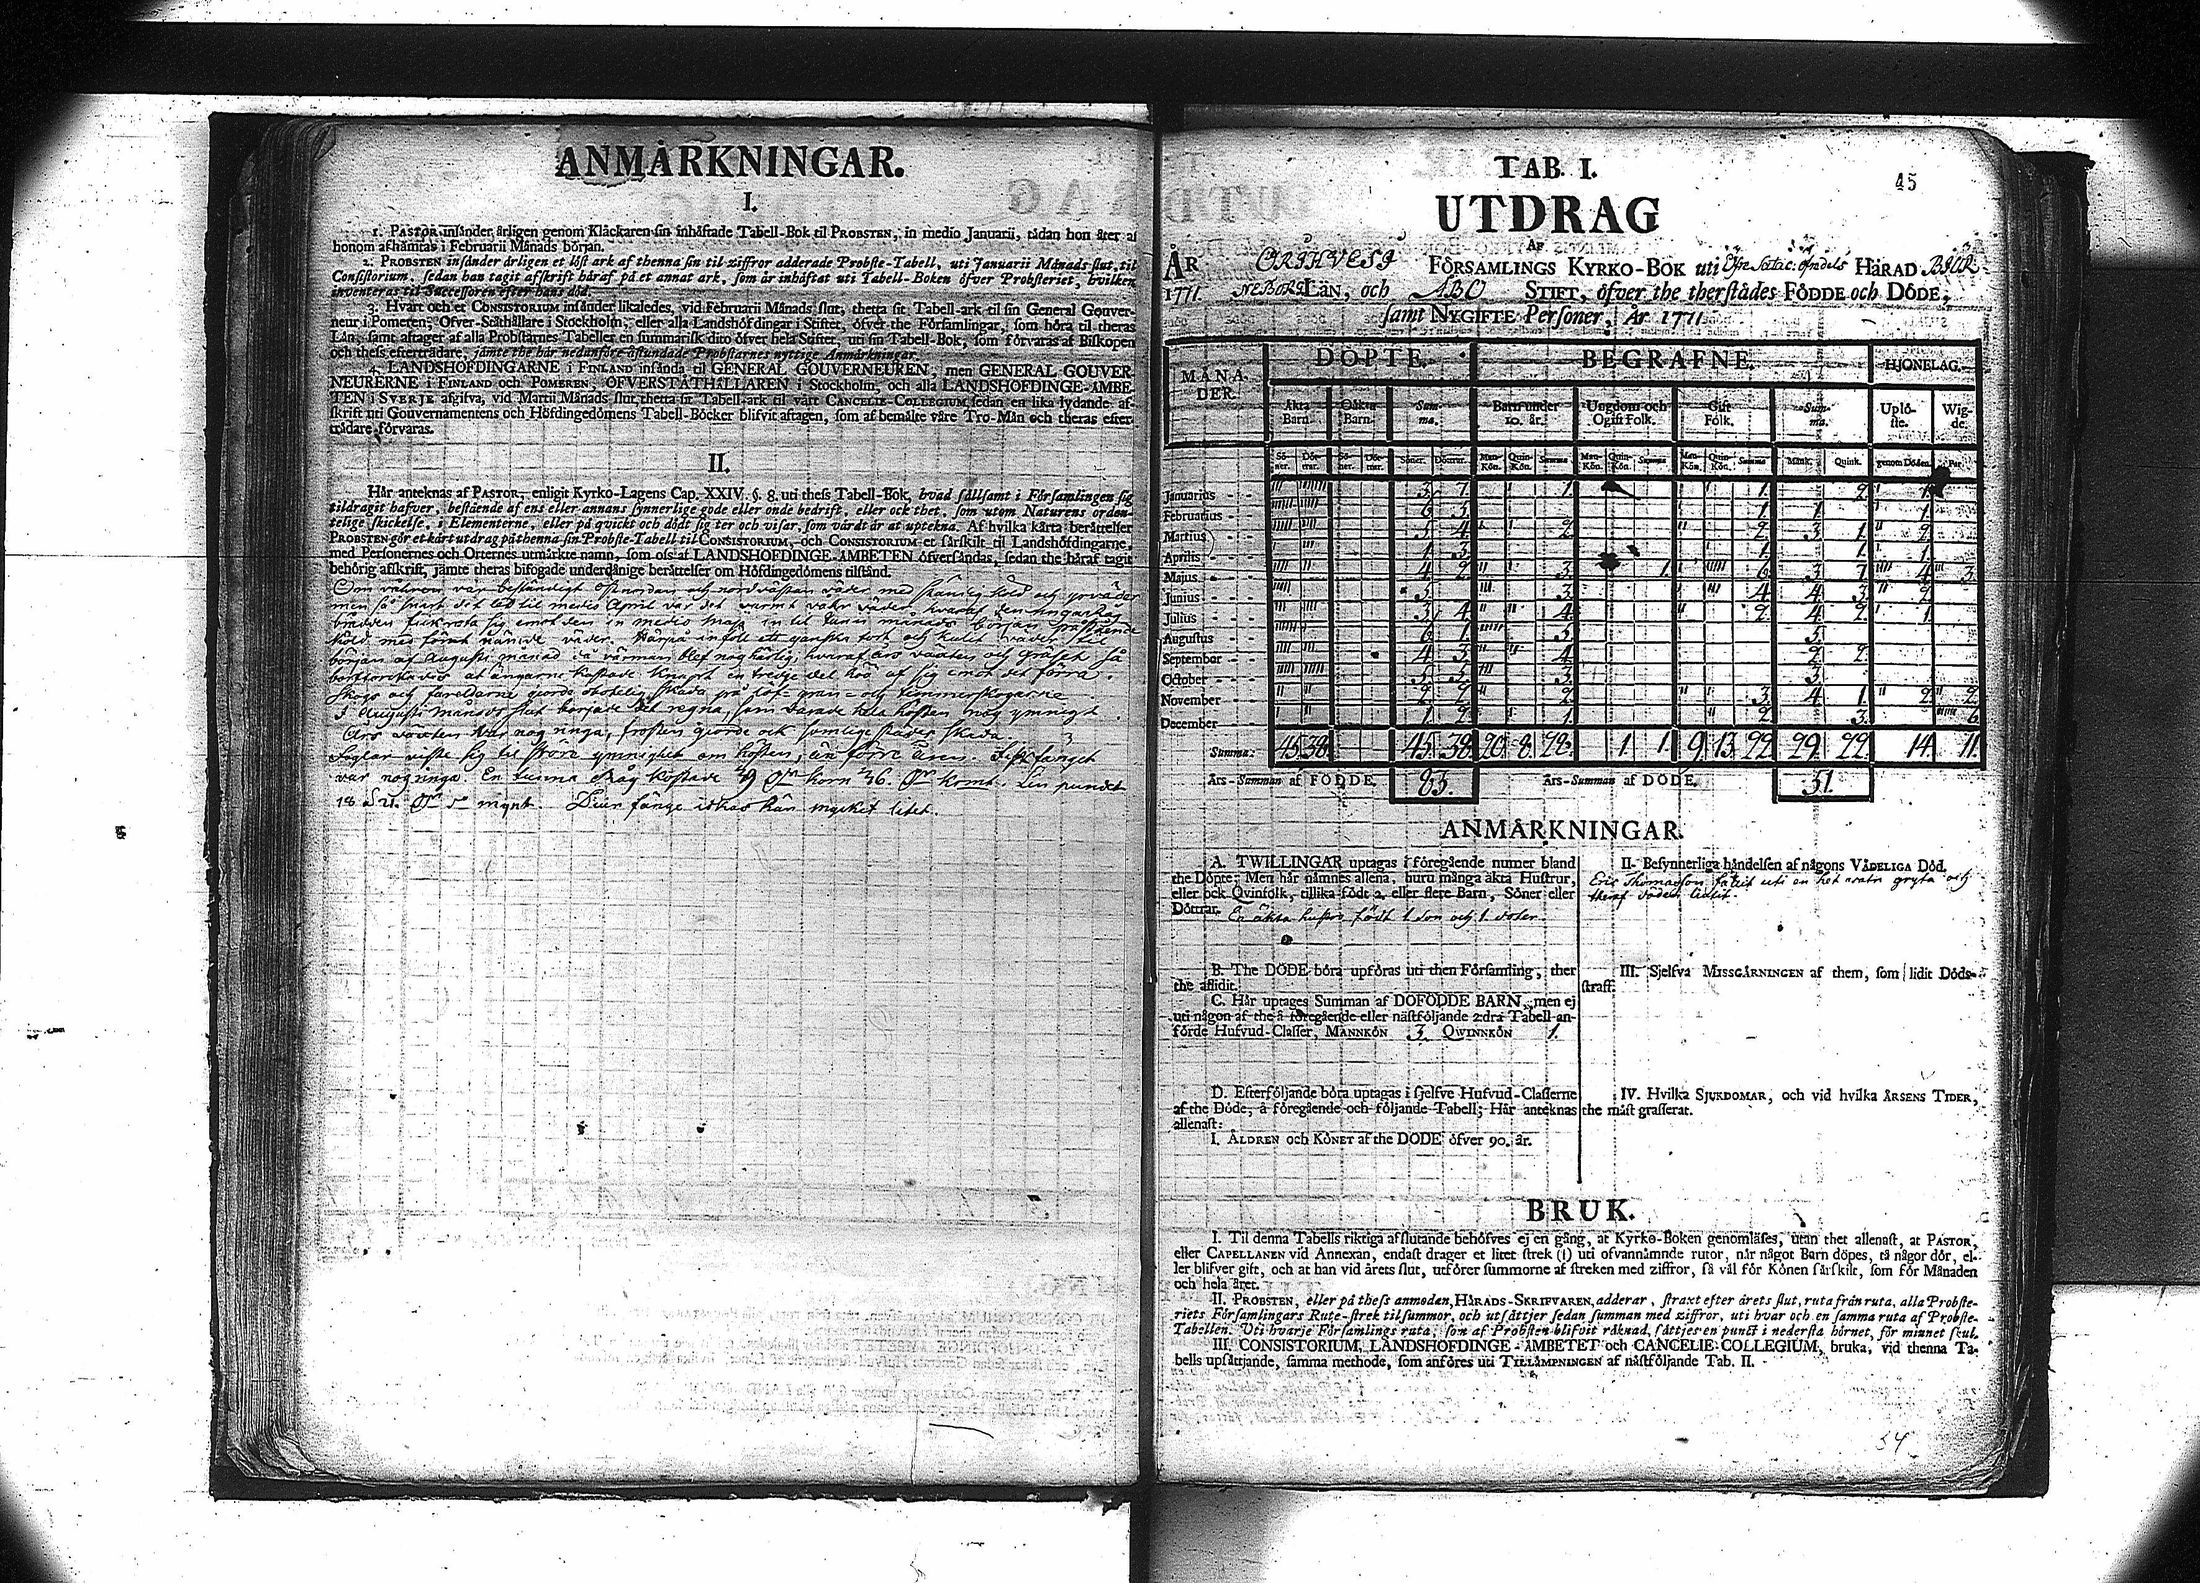 ANMÄRKNINGAR.
I.
1. PASTOR insänder årligen genom Kläckaren sin inhäftade Tabell-Bok til PROBSTEN, in medio Januarii, tådan hon åter af
honom afhämtas i Februarii Månads början.
2. PROBSTEN insänder årligen et löst ark af thenna sin til ziffror adderade Probste-Tabell, uti Januarii Månads slut, til
Consistorium, sedan han tagit afskrift häraf på et annat ark, som är inhäftat uti Tabell-Boken öfver Probsteriet, hvilken
inventeras til Successoren efter hans död.
3. Hvart och et CONSISTORIUM insänder likaledes, vid Februarii Månads slut, thetta sit Tabell-ark til sin General Gouver-
neur i Pomeren, Öfver-Ståthållare i Stockholm, eller alla Landshöfdingar i Stiftet, öfver the Församlingar, som höra til theras
Län, samt aftager af alla Probstarnes Tabeller en summarisk dito öfver hela Stiftet, uti sin Tabell-Bok, som förvaras af Biskopen
och thess efterträdare, jämte the här nedanföre åstundade Probstarnes nyttige Anmärkningar.
4. LANDSHÖFDINGARNE i FINLAND insända til GENERAL GOUVERNEUREN, men GENERAL GOUVER-
NEURERNE i FINLAND och POMEREN, ÖFVERSTÅTHÅLLAREN i Stockholm, och alla LANDSHÖFDINGE-ÄMBE-
TEN i SVERJE afgifva, vid Martii Månads slut, thetta sit Tabell-ark til vårt CANCELIE-COLLEGIUM, sedan en lika lydande af-
skrift uti Gouvernamentens och Höfdingedömens Tabell-Böcker blifvit aftagen, som af bemälte våre Tro-Män och theras efter-
trädare förvaras.
II.
Här anteknas af PASTOR, enligit Kyrko-Lagens Cap. XXIV. §. 8. uti thess Tabell-Bok, hvad sällsamt i Församlingen sig
tildragit hafver, bestående af ens eller annans synnerlige gode eller onde bedrift, eller ock thet, som utom Naturens orden-
telige skickelse, i Elementerne, eller på quickt och dödt sig ter och visar, som värdt är at uptekna. Af hvilka kårta berättelser
PROBSTEN gör et kårt utdrag på thenna sin Probste-Tabell til CONSISTORIUM, och CONSISTORIUM et särskilt til Landshöfdingarne,
med Personernes och Orternes utmärkte namn, som oss af LANDSHÖFDINGE-ÄMBETEN öfversändas, sedan the häraf tagit
behörig afskrift, jämte theras bifogade underdånige berättelser om Höfdingedömens tilstånd.
Om våhren var beständigt Nordan och nordvästan väder med ständig köld och
men så snart det led til medio April var det varmt vahr väder, hvaraf den
brådden fick emot den in medio Maji in til Junii månads början
köld med förut nämde väder. Härpå infoll ett ganska tort och kulit väder til
början af Augusti månad då värman blef nog häftig, hvaraf års växten och gräset så
at ängarne kastade knapt en tredje del hö af sig emot det förra.
Skogs och farelderne giorde otrolig skada på löf- gran- och timmerskogarne
I Augusti månads slut började det regna, som varade hela hösten nog ymnigt
Års växten var nog ringa, frosten giorde ock somlige städer skada.
Foglar viste sig til större ymnighet om hösten, än förre åren. Fiskfänget
var nog ringa. En tunna Råg kostade 39 korn 36. Lin pundet
18 a 21. mynt. Diur fänge idkas här mycket litet.
TAB. I.
45
UTDRAG
AF
ÅR ORIHVESI FÖRSAMLINGS KYRKO-BOK uti HÄRAD
1771. LÄN, och ÅBO STIFT, öfver the therstädes FÖDDE och DÖDE,
samt NYGIFTE Personer, År 1771
MÅNADER. DÖPTE. BEGRAFNE. HJONELAG.
Äkta Barn. Oäkta Barn. Summa. Barn under 10. år. Ungdom och Ogift Folk. Gift Folk. Summa. Uplöste. Wigde.
Söner. Döttrar. Söner. Döttrar. Söner. Döttrar. Man-Kön. Quin-Kön. Summa Man-Kön. Quin-Kön. Summa Man-Kön. Quin-Kön. Summa Mank. Quink. genom Döden. Par.
Januarius 3. 7. 1. 1. 2. 1.
Februarius 6. 3. 1. 1. 1.
Martius 5. 4. 2. 2. 3. 1. 2.
Aprilis 1. 3. 1. 1. 1.
Majus 4. 2. 3. 1. 6. 3. 7. 4. 3.
Junius 5. 3. 4. 4. 3. 2.
Julius 3. 4. 4. 2. 4. 2. 1.
Augustus 6. 1. 5. 5.
September 4. 3. 4. 2. 2.
October 5. 5. 3. 3.
November 2. 2. 2. 3. 4. 1. 2. 2.
December 1. 2. 1. 2. 3. 6.
Summa: 45. 38. 45. 38. 20. 8. 28. 1 1. 9. 13. 22. 29. 22. 14. 11.
Års-Summan af FÖDDE. 83. Års-Summan af DÖDE. 51.
ANMÄRKNINGAR.
A. TWILLINGAR uptagas i föregående numer bland
the Döpte; Men här nämnes allena, huru många äkta Hustrur,
eller ock Qvinfolk, tillika födt 2. eller flere Barn, Söner eller
Döttrar. En äkta hustru födt 1 son och 1 doter.
B. The DÖDE böra upföras uti then Församling, ther
the aflidit.
C. Här uptages Summan af DÖFÖDDE BARN, men ej
uti någon af the å föregående eller nästföljande 2:dra Tabell an-
förde Hufvud-Classer, MANNKÖN 3. QWINNKÖN 1.
D. Efterföljande böra uptagas i sjelfve Hufvud-Classerne
af the Döde, å föregående och följande Tabell; Här anteknas
allenast:
I. ÅLDREN och KÖNET af the DÖDE öfver 90. år.
II. Besynnerliga händelsen af någons VÅDELIGA Död.
Eric Thomasson fallit uti en het vatn gryta och
theraf döden lidit.
III. Sjelfva MISSGÄRNINGEN af them, som lidit Döds-
straff.
IV. Hvilka SJUKDOMAR, och vid hvilka ÅRSENS TIDER,
the mäst grasserat.
BRUK.
I. Til denna Tabells riktiga afslutande behöfves ej en gång, at Kyrko-Boken genomläses, utan thet allenast, at PASTOR,
eller CAPELLANEN vid Annexan, endast drager et litet strek (|) uti ofvannämnde rutor, när något Barn döpes, tå någor dör, el-
ler blifver gift, och at han vid årets slut, utförer summorne af streken med ziffror, så väl för Könen särskilt, som för Månaden
och hela året.
II. PROBSTEN, eller på thess anmodan, HÄRADS-SKRIFVAREN, adderar, straxt efter årets slut, ruta från ruta, alla Probste-
riets Församlingars Rute-strek tilsummor, och utsättjer sedan summan med ziffror, uti hvar och en samma ruta af Probste-
Tabellen. Uti hvarje Församlings ruta, som af Probsten blifvit räknad, sättjes en punct i nedersta hörnet, för minnet skul.
III. CONSISTORIUM, LANDSHÖFDINGE-ÄMBETET och CANCELIE-COLLEGIUM, bruka, vid thenna Ta-
bells upsättjande, samma methode, som anföres uti TILLÄMPNINGEN af nästföljande Tab. II.
54